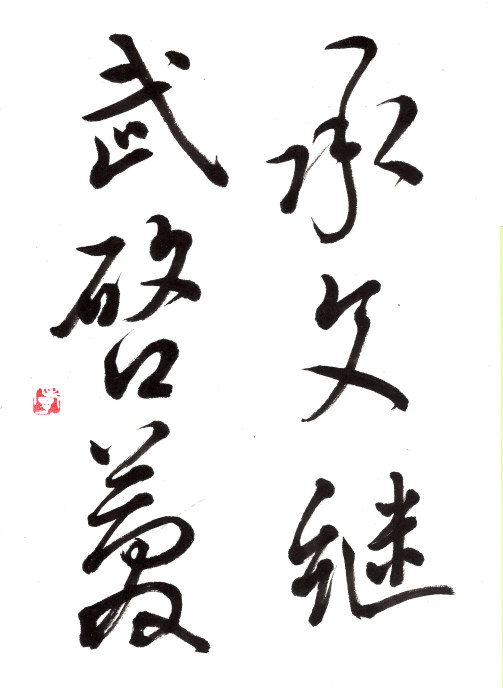 承文継
武啓